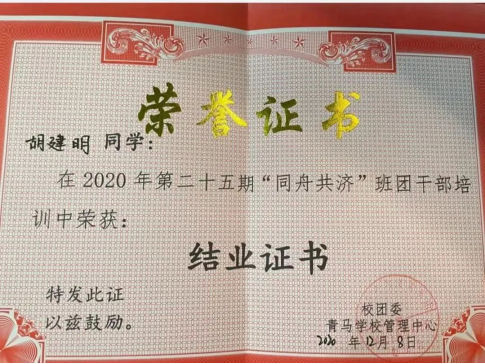 荣誉证书
胡建明 同学：
在2020年第二十五期“同舟共济”班团干部培
训中荣获：
结业证书
特发此证
以兹鼓励。
校团委
青马学校管理中心
2020年12月8日